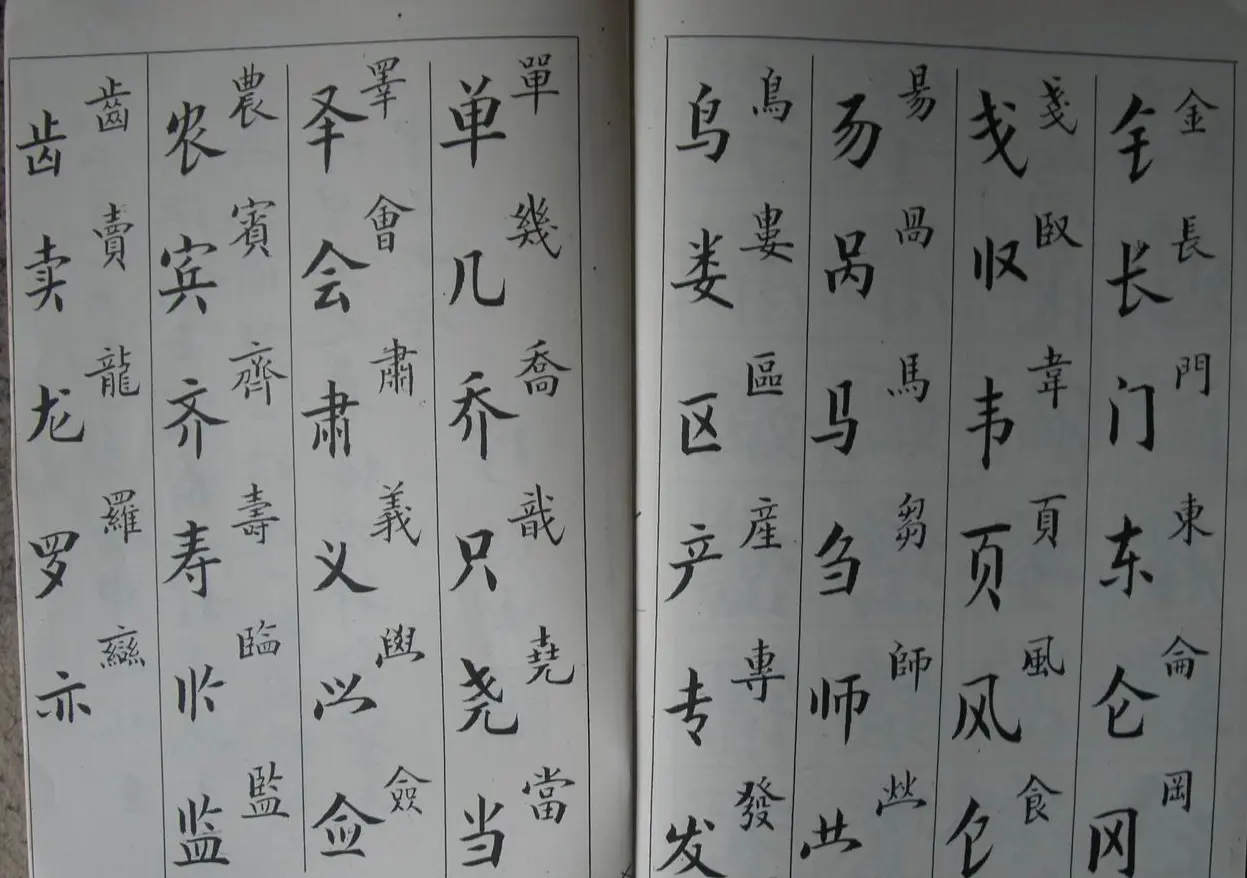 金長門東侖岡
钅长门东仑冈
戔臤韋頁風食
戋韦页风饣
昜咼馬芻師
𠃓呙马刍师
鳥婁區産專發
鸟娄区产专发
單幾喬戠堯當
单几乔只尧当
睪會肅義僉
𠬤会肃义佥
農賓齊壽監
农宾齐寿监
齒賣龍羅䜌
齿卖龙罗亦